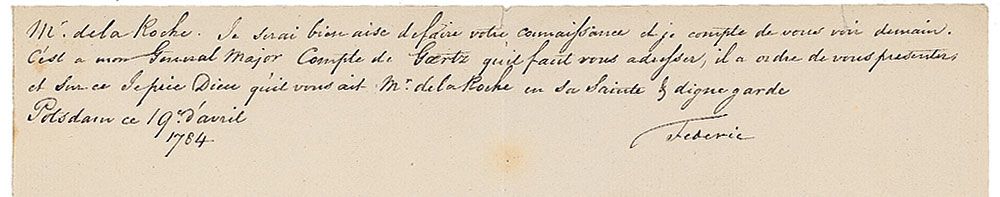 Mr. de la Roche. Je serai bien aise de faire votre connaissance et je compte de vous voir demain.
C'est a mon General Major Compte de Goertz qu'il faut vous adresser, il a ordre de vous presenter,
et sur ce Je prie Dieu qu'il vous ait Mr. de la Roche en sa Sainte & digne garde
Potsdam ce 19e d'avril
1784
Federic